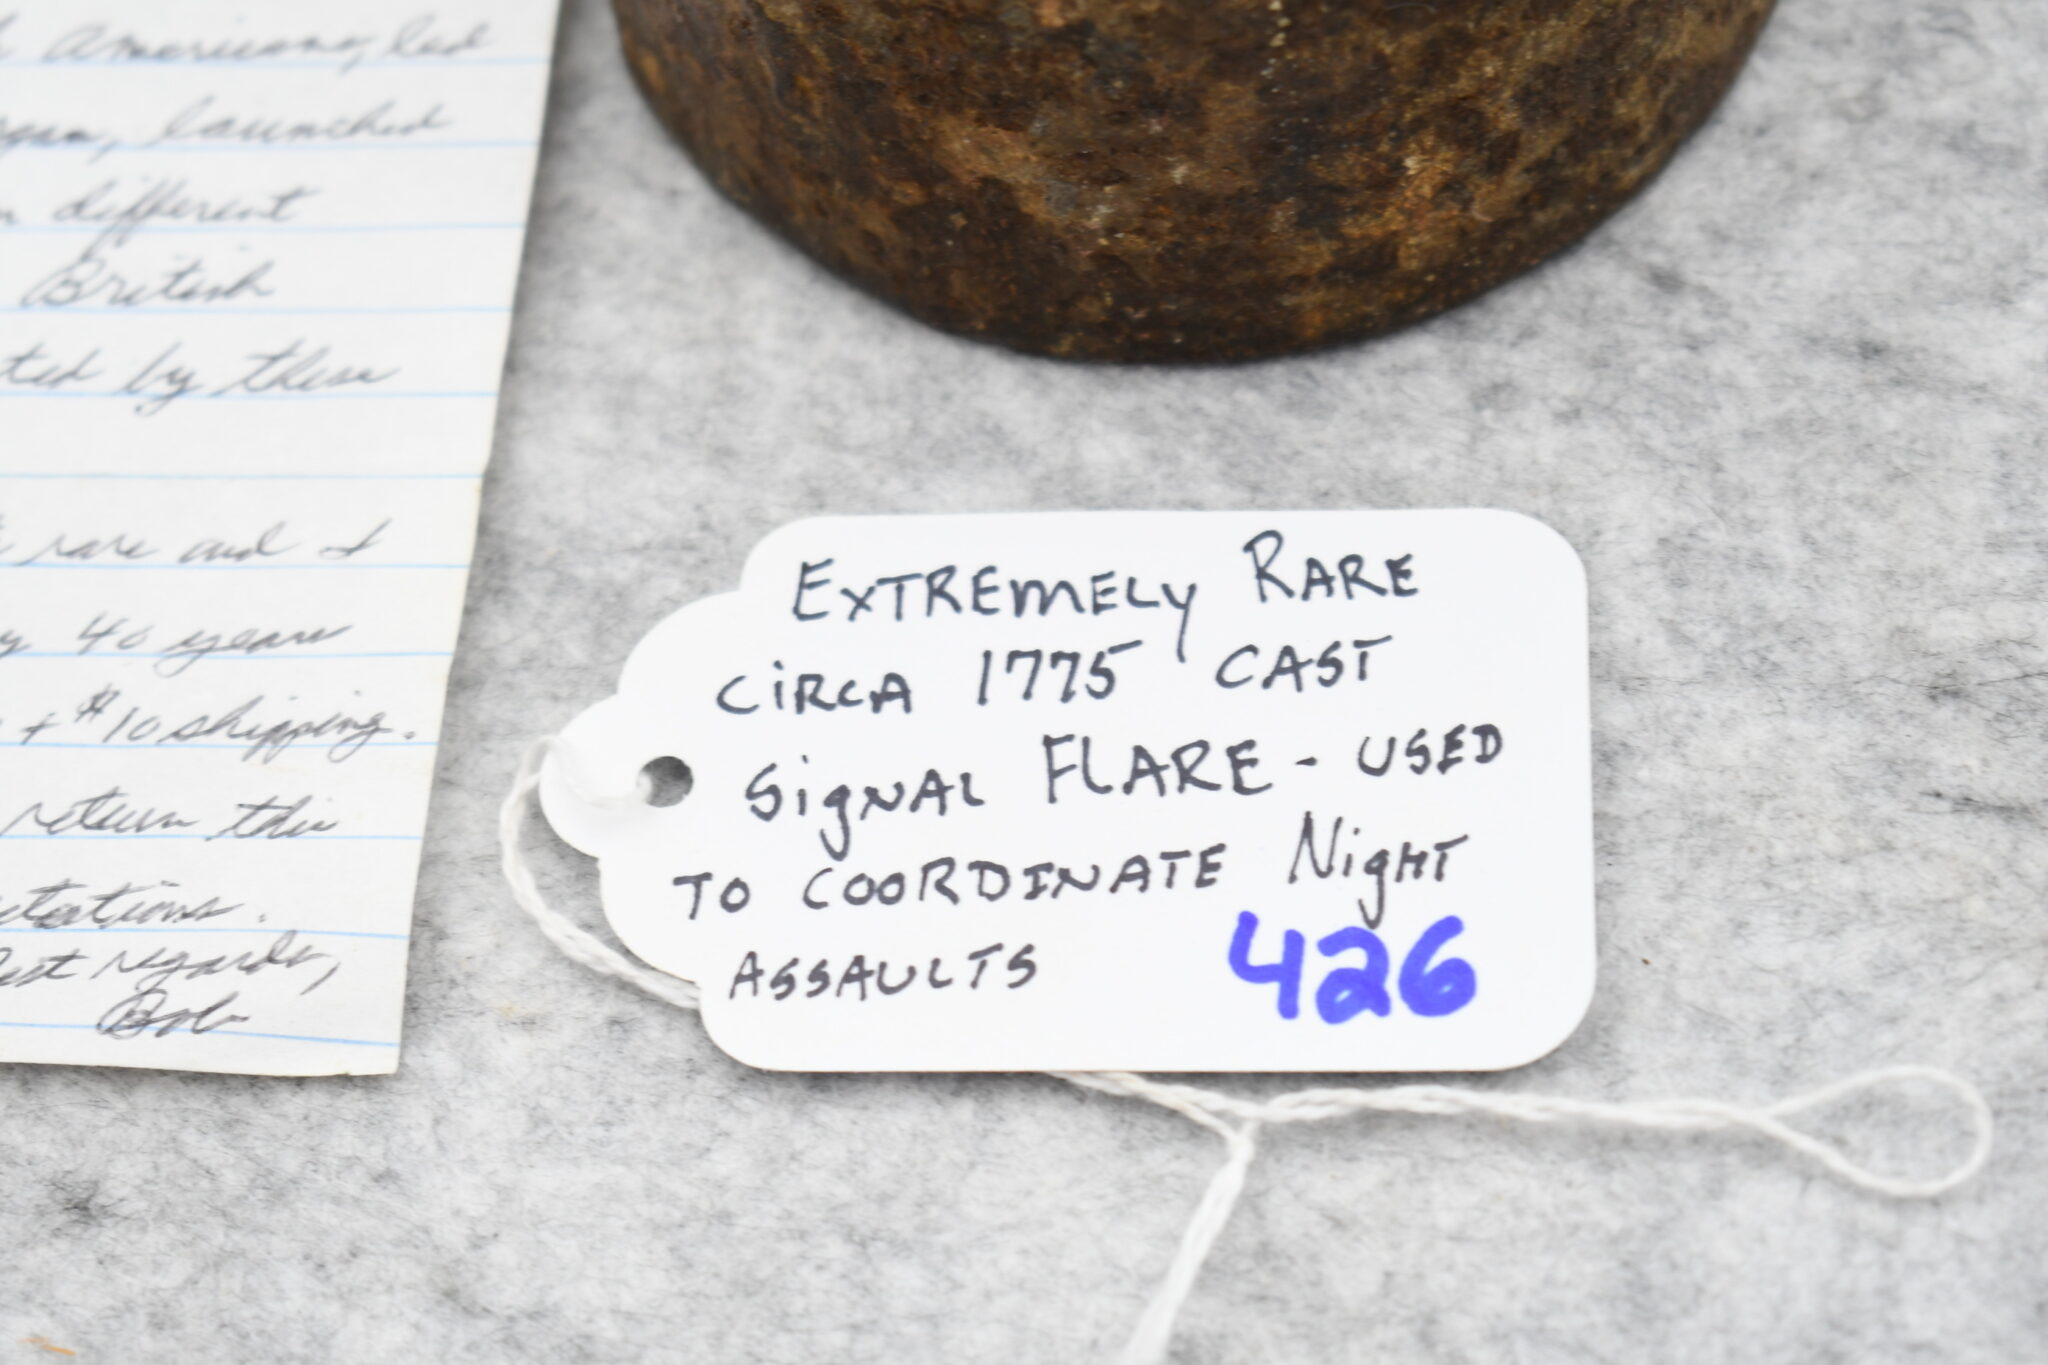 Americans, led
launched
different
British
by these
rare and I
40 years
+ $10 shipping.
return this
regards,
Bob
EXTREMELY RARE
CIRCA 1775 CAST
SIGNAL FLARE - USED
TO COORDINATE NIGHT
ASSAULTS 426